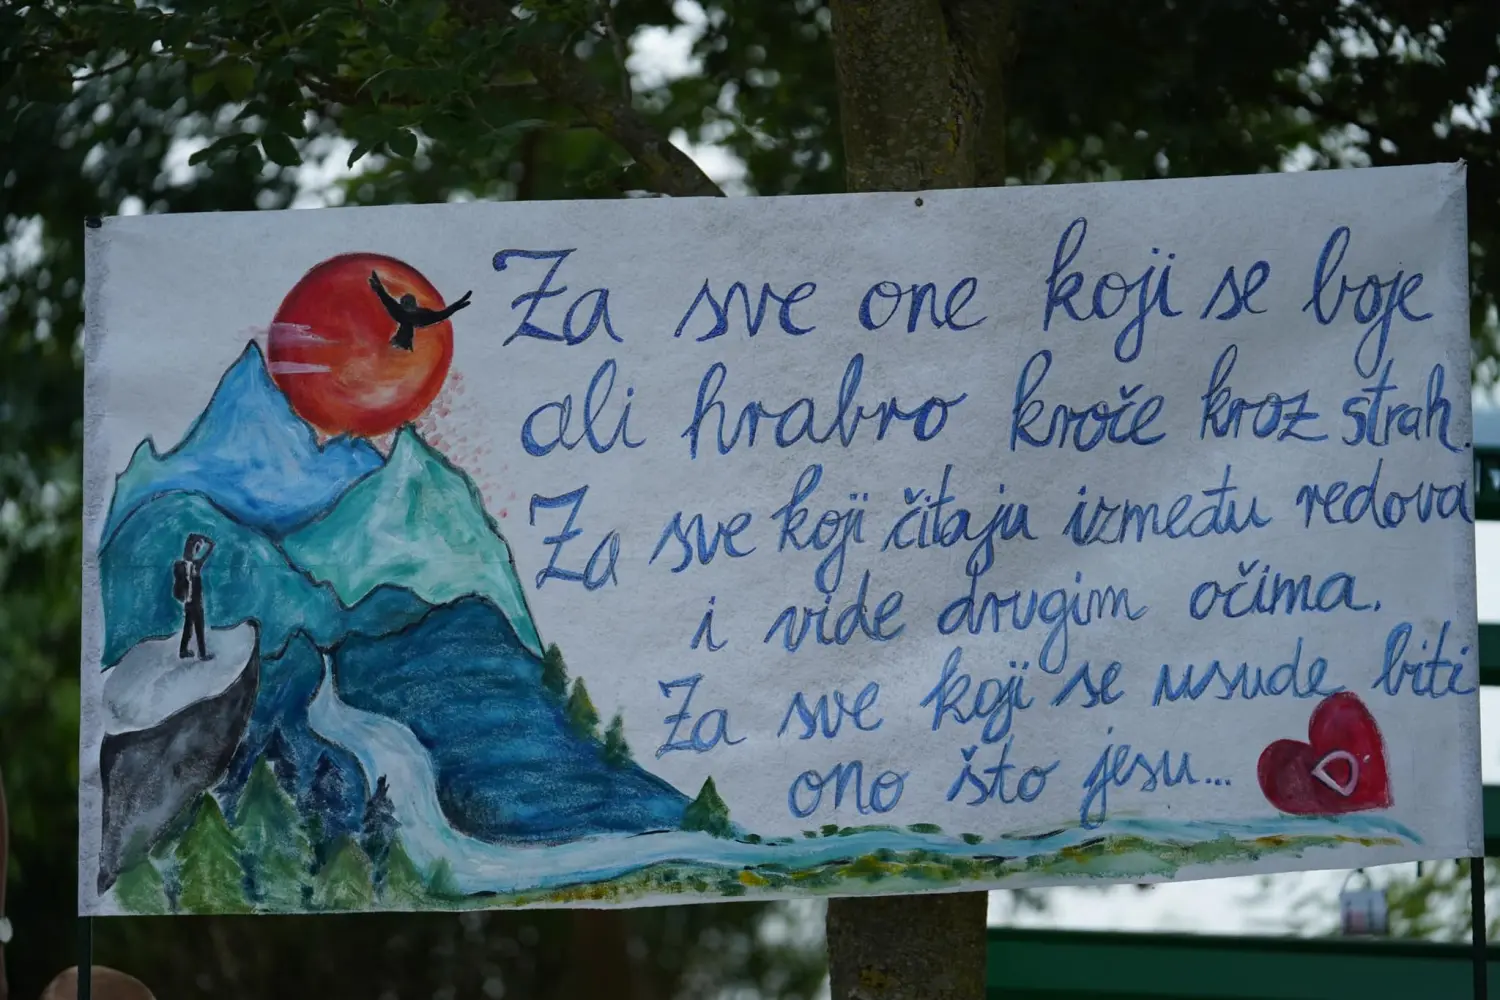 Za sve one koji se boje
ali hrabro kroče kroz strah.
Za sve koji čitaju između redova
i vide drugim očima.
Za sve koji se usude biti
ono što jesu...